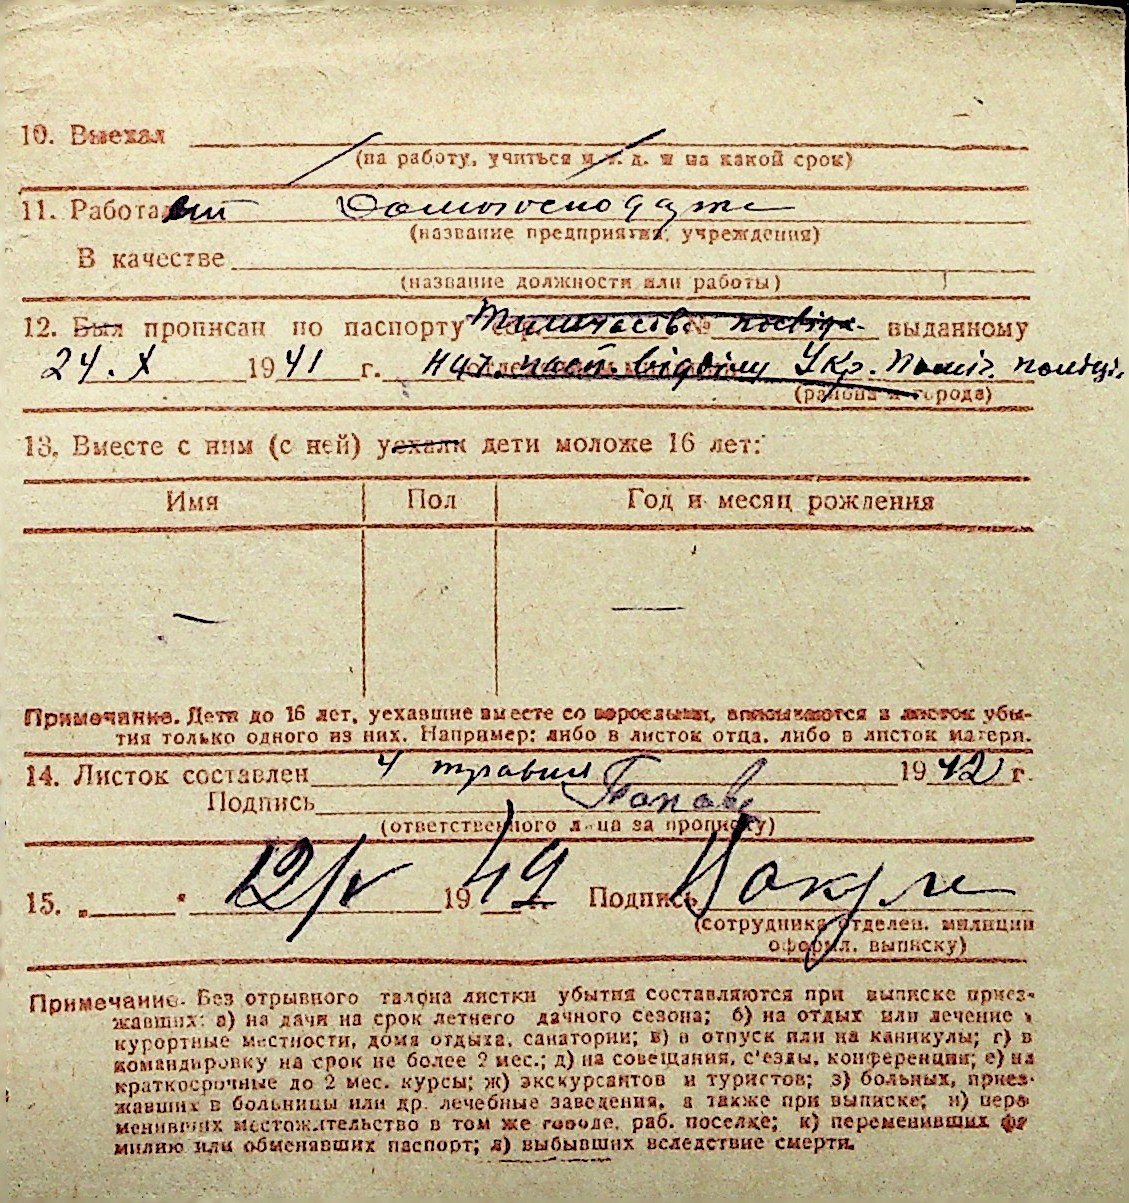 10. Выехал
(на работу, учиться и т. д. и на какой срок)
11. Работал Домогосподарка
(название предприятия, учреждения)
В качестве
(название должности или работы)
12. Был прописан по паспорту Тимчасов. № посвідч. выданному
24. X 1941 г. нач. пасп. відділу Укр. Поміч. поліції
(района и города)
13. Вместе с ним (с ней) уехали дети моложе 16 лет:
Имя Пол Год и месяц рождения
— —
Примечание. Дети до 16 лет, уехавшие вместе со взрослыми, вписываются в листок убы-
тия только одного из них. Например: либо в листок отца, либо в листок матери.
14. Листок составлен 4 травня 1942 г.
Подпись
(ответственного лица за прописку)
15. „ " 12/V 19 42 Подпись
(сотрудника отделен. милиции
оформл. выписку)
Примечание. Без отрывного талона листки убытия составляются при выписке приез-
жавших: а) на дачи на срок летнего дачного сезона; б) на отдых или лечение в
курортные местности, дома отдыха, санатории; в) в отпуск или на каникулы; г) в
командировку на срок не более 2 мес.; д) на совещания, с'езды, конференции; е) на
краткосрочные до 2 мес. курсы; ж) экскурсантов и туристов; з) больных, приез-
жавших в больницы или др. лечебные заведения, а также при выписке; и) пере
менивших местожительство в том же городе, раб. поселке; к) переменивших фа
милию или обменявших паспорт; л) выбывших вследствие смерти.